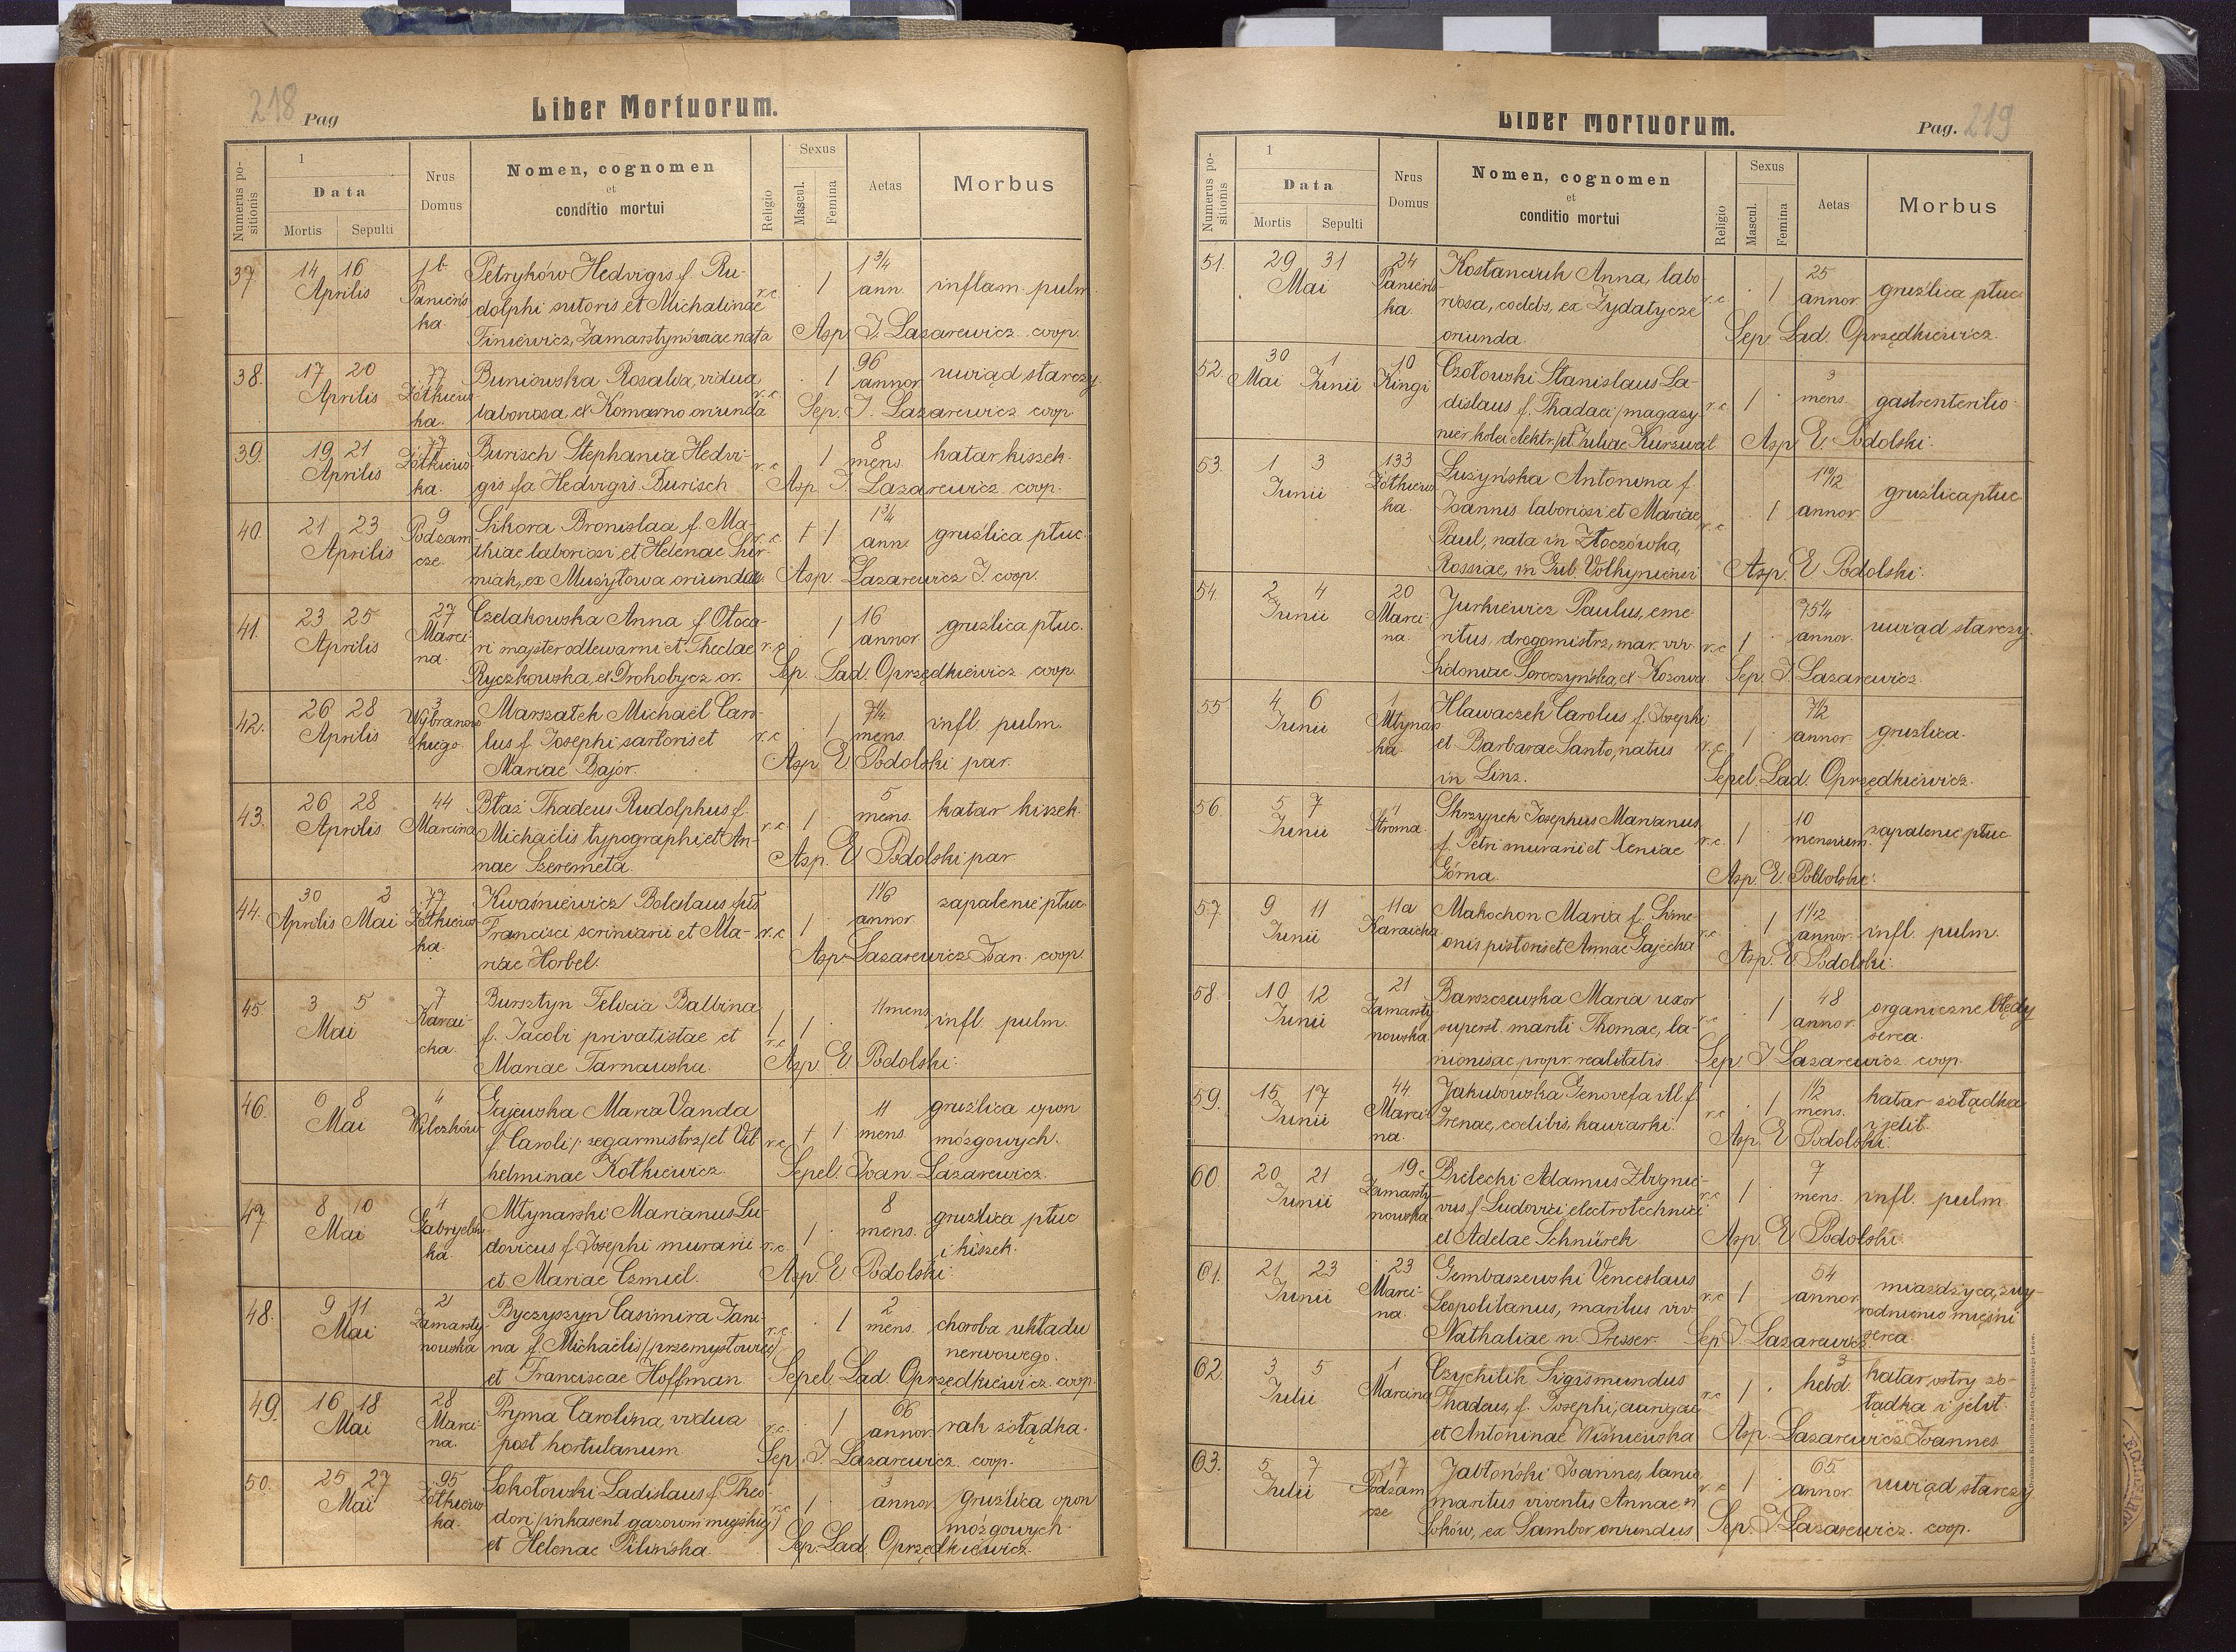 218 Pag
Liber Mortuorum.
Numerus positionis
1
Data
Mortis Sepulti
Nrus Domus
Nomen, cognomen
et
conditio mortui
Religio
Sexus
Mascul.
Femina
Aetas
Morbus
37. 14 16 1b Petryków Hedvigis f. Ru- 1 3/4
Aprilis Panieńs- dolphi sutoris et Michalinae r.c. 1 ann. inflam. pulm.
ka. Finiewicz, Zamarstynówiae nata Asp. I. Lazarewicz coop.
38. 17 20 77 Buniowska Rosalia, vidua 1 96 uwiąd starczy.
Aprilis Żółkiews- laboriosa, ex Komarno oriunda r.c. annor.
ka. Sep. I. Lazarewicz coop
39. 19 21 77 Burisch Stephania Hedvi- 8
Aprilis Żółkiews- gis fa Hedvigis Burisch r.c. 1 mens. katar kiszek.
ka. Asp. I. Lazarewicz coop.
40. 21 23 9 Sikora Bronislaa f. Ma- r.c. + 1 1 3/4
Aprilis Podzam- thiae laboriosi et Helenae ann. gruźlica płuc.
cze. ex Asp. Lazarewicz I. coop.
41. 23 25 27 Czelakowska Anna f. Otoca- 1 16
Aprilis Marci- ri majster odlewarni et Theclae r.c. annor. gruźlica płuc.
na. Ryczkowska, ex Drohobycz or. Sep. Lad. Oprzędkiewicz coop.
42. 26 28 3 Marszałek Michaël Caro- 1 7 1/4 infl. pulm.
Aprilis Wybranow- lus f. Josephi sartoris et r.c. mens.
skiego. Mariae Bajor. Asp E Podolski par.
43. 26 28 44 Błaż Thadeus Rudolphus f. 5
Aprilis Marcina Michaëlis typographi et An- r.c. 1 mens. katar kiszek.
nae Szeremeta. Asp. E Podolski par
44. 30 2 77 Kwaśniewicz Boleslaus fil 1 1/6 zapalenie płuc.
Aprilis Mai Żółkiews- Francisci scriniarii et Ma- r.c. 1 annor.
ka. riae Horbel. Asp. Lazarewicz Joan. coop.
45. 3 5 7 Bursztyn Felicia Balbina 11 mens
Mai Karai- f. Jacobi privatistae et r.c. 1 1 infl. pulm.
cka. Mariae Tarnawska. Asp E Podolski.
46. 6 8 4 Gajewska Maria Vanda 11 gruźlica opon
Mai Wilczków f. Caroli /: zegarmistrz/ et Vil- r.c. + 1 mens. mózgowych.
helminae Kotkiewicz. Sepel. Joan. Lazarewicz.
47. 8 10 4 Młynarski Marianus Lu- 8 gruźlica płuc
Mai Gabryelów- dovicus f. Josephi murarii r.c. 1 mens. i kiszek.
ka. et Mariae Czmiel. Asp E Podolski.
48. 9 11 21 Byczyszyn Casimira Jani- 2
Mai Zamarsty- na f. Michaëlis /przemysłowiec/ r.c. 1 mens. choroba układu
nowska et Franciscae Hoffman. nerwowego.
Sepel. Lad. Oprzędkiewicz. coop.
49. 16 18 28 Pryma Carolina, vidua r.c. 1 66
Mai Marci- post hortulanum. annor. rak żołądka.
na. Sep. I. Lazarewicz coop.
50. 25 27 95 Sokołowski Ladislaus f. Theo- 3
Mai Żółkiews- dori /inkasent gazowni miejskiej/ r.c. 1 annor gruźlica opon
ka. et Helenae Pilińska. mózgowych.
Sep. Lad. Oprzędkiewicz.
Liber Mortuorum.
Pag. 219
Numerus positionis
1
Data
Mortis Sepulti
Nrus Domus
Nomen, cognomen
et
conditio mortui
Religio
Sexus
Mascul.
Femina
Aetas
Morbus
51. 29 31 24 Kostanciuk Anna, labo- 25
Mai Panieńs- riosa, coelebs, ex Żydatycze r.c. 1 annor. gruźlica płuc.
ka. oriunda. Sep. Lad. Oprzędkiewicz.
52. 30 1 10 Czołowski Stanislaus La- 3
Mai Junii Kingi dislaus f. Thadaei /magazy- r.c. 1 mens. gastrenteritio.
nier kolei elektr./ et Juliae Kurzweil Asp E. Podolski.
53. 1 3 133 Łuzyńska Antonina f. 1 10/12
Junii Żółkiews- Joannis laboriosi et Mariae r.c. 1 annor. gruźlica płuc
ka. Paul, nata in Złoczówka,
Rossiae, in Gub. Volhyniensi Asp. E Podolski.
54. 2 4 20 Jurkiewicz Paulus, eme- 75 1/4
Junii Marci- ritus, drogomistrz, mar. viv. r.c. 1 annor. uwiąd starczy.
na. Sidoniae Soroczyńska, ex Kozowa Sep. I. Lazarewicz.
55 4 6 1 Hlawaczek Carolus f. Josephi 7/2
Junii Młynars- et Barbarae Santo, natus r.c. 1 annor. gruźlica.
ka. in Linz. Sepel. Lad. Oprzędkiewicz.
56 5 7 4 Skrzypek Josephus Marianus 10
Junii Stroma. f. Petri murarii et Xeniae r.c. 1 mensium. zapalenie płuc
Górna. Asp. E. Podolski.
57. 9 11 11a Makochon Maria f. Sime- 1 1/12
Junii Karaicka onis pistoris et Annae Gajecka r.c. 1 annor. infl. pulm.
Asp. E Podolski.
58. 10 12 21 Barszczewska Maria uxor 1 48 organiczne błędy
Junii Zamarsty- superst. mariti Thomae, la- r.c. annor. serca.
nowska nionisae propr. realitatis. Sep. I Lazarewicz coop.
59. 15 17 44. Jakubowska Genovefa M f. 1 1/2 katar żołądka
Junii Marci- Irenae, coelibis, kawiarki. r.c. 1 mens. i jelit.
na. Asp. E Podolski.
60. 20 21 19c Bielecki Adamus Zbignie- 7
Junii Zamarsty- vus f. Ludovici electrotechnici r.c. 1 mens. infl. pulm
nowska et Adelae Schnürek Asp. E Podolski
61. 21 23 23 Gembaszewski Venceslaus 54 miażdżyca, zwy-
Junii Marci- Leopolitanus, maritus viv. r.c. 1 annor. rodnienie mięśni
na. Nathaliae n. Presser. Sep. I. Lazarewicz. serca.
62. 3 5 1 Czychilik Sigismundus 3 katar ostry żo-
Julii Marcina Thadeus, f. Josephi, aurigae r.c. 1 hebd. łądka i jelit.
et Antoninae Wiśniewska Asp. Lazarewicz Joannes
63. 5 7 17 Jabłoński Joannes, lanio, 65
Julii Podzam- maritus viventis Annae n. r.c. 1 annor. uwiąd starczy.
cze Soków, ex Sambor oriundus Sep. I. Lazarewicz. coop.